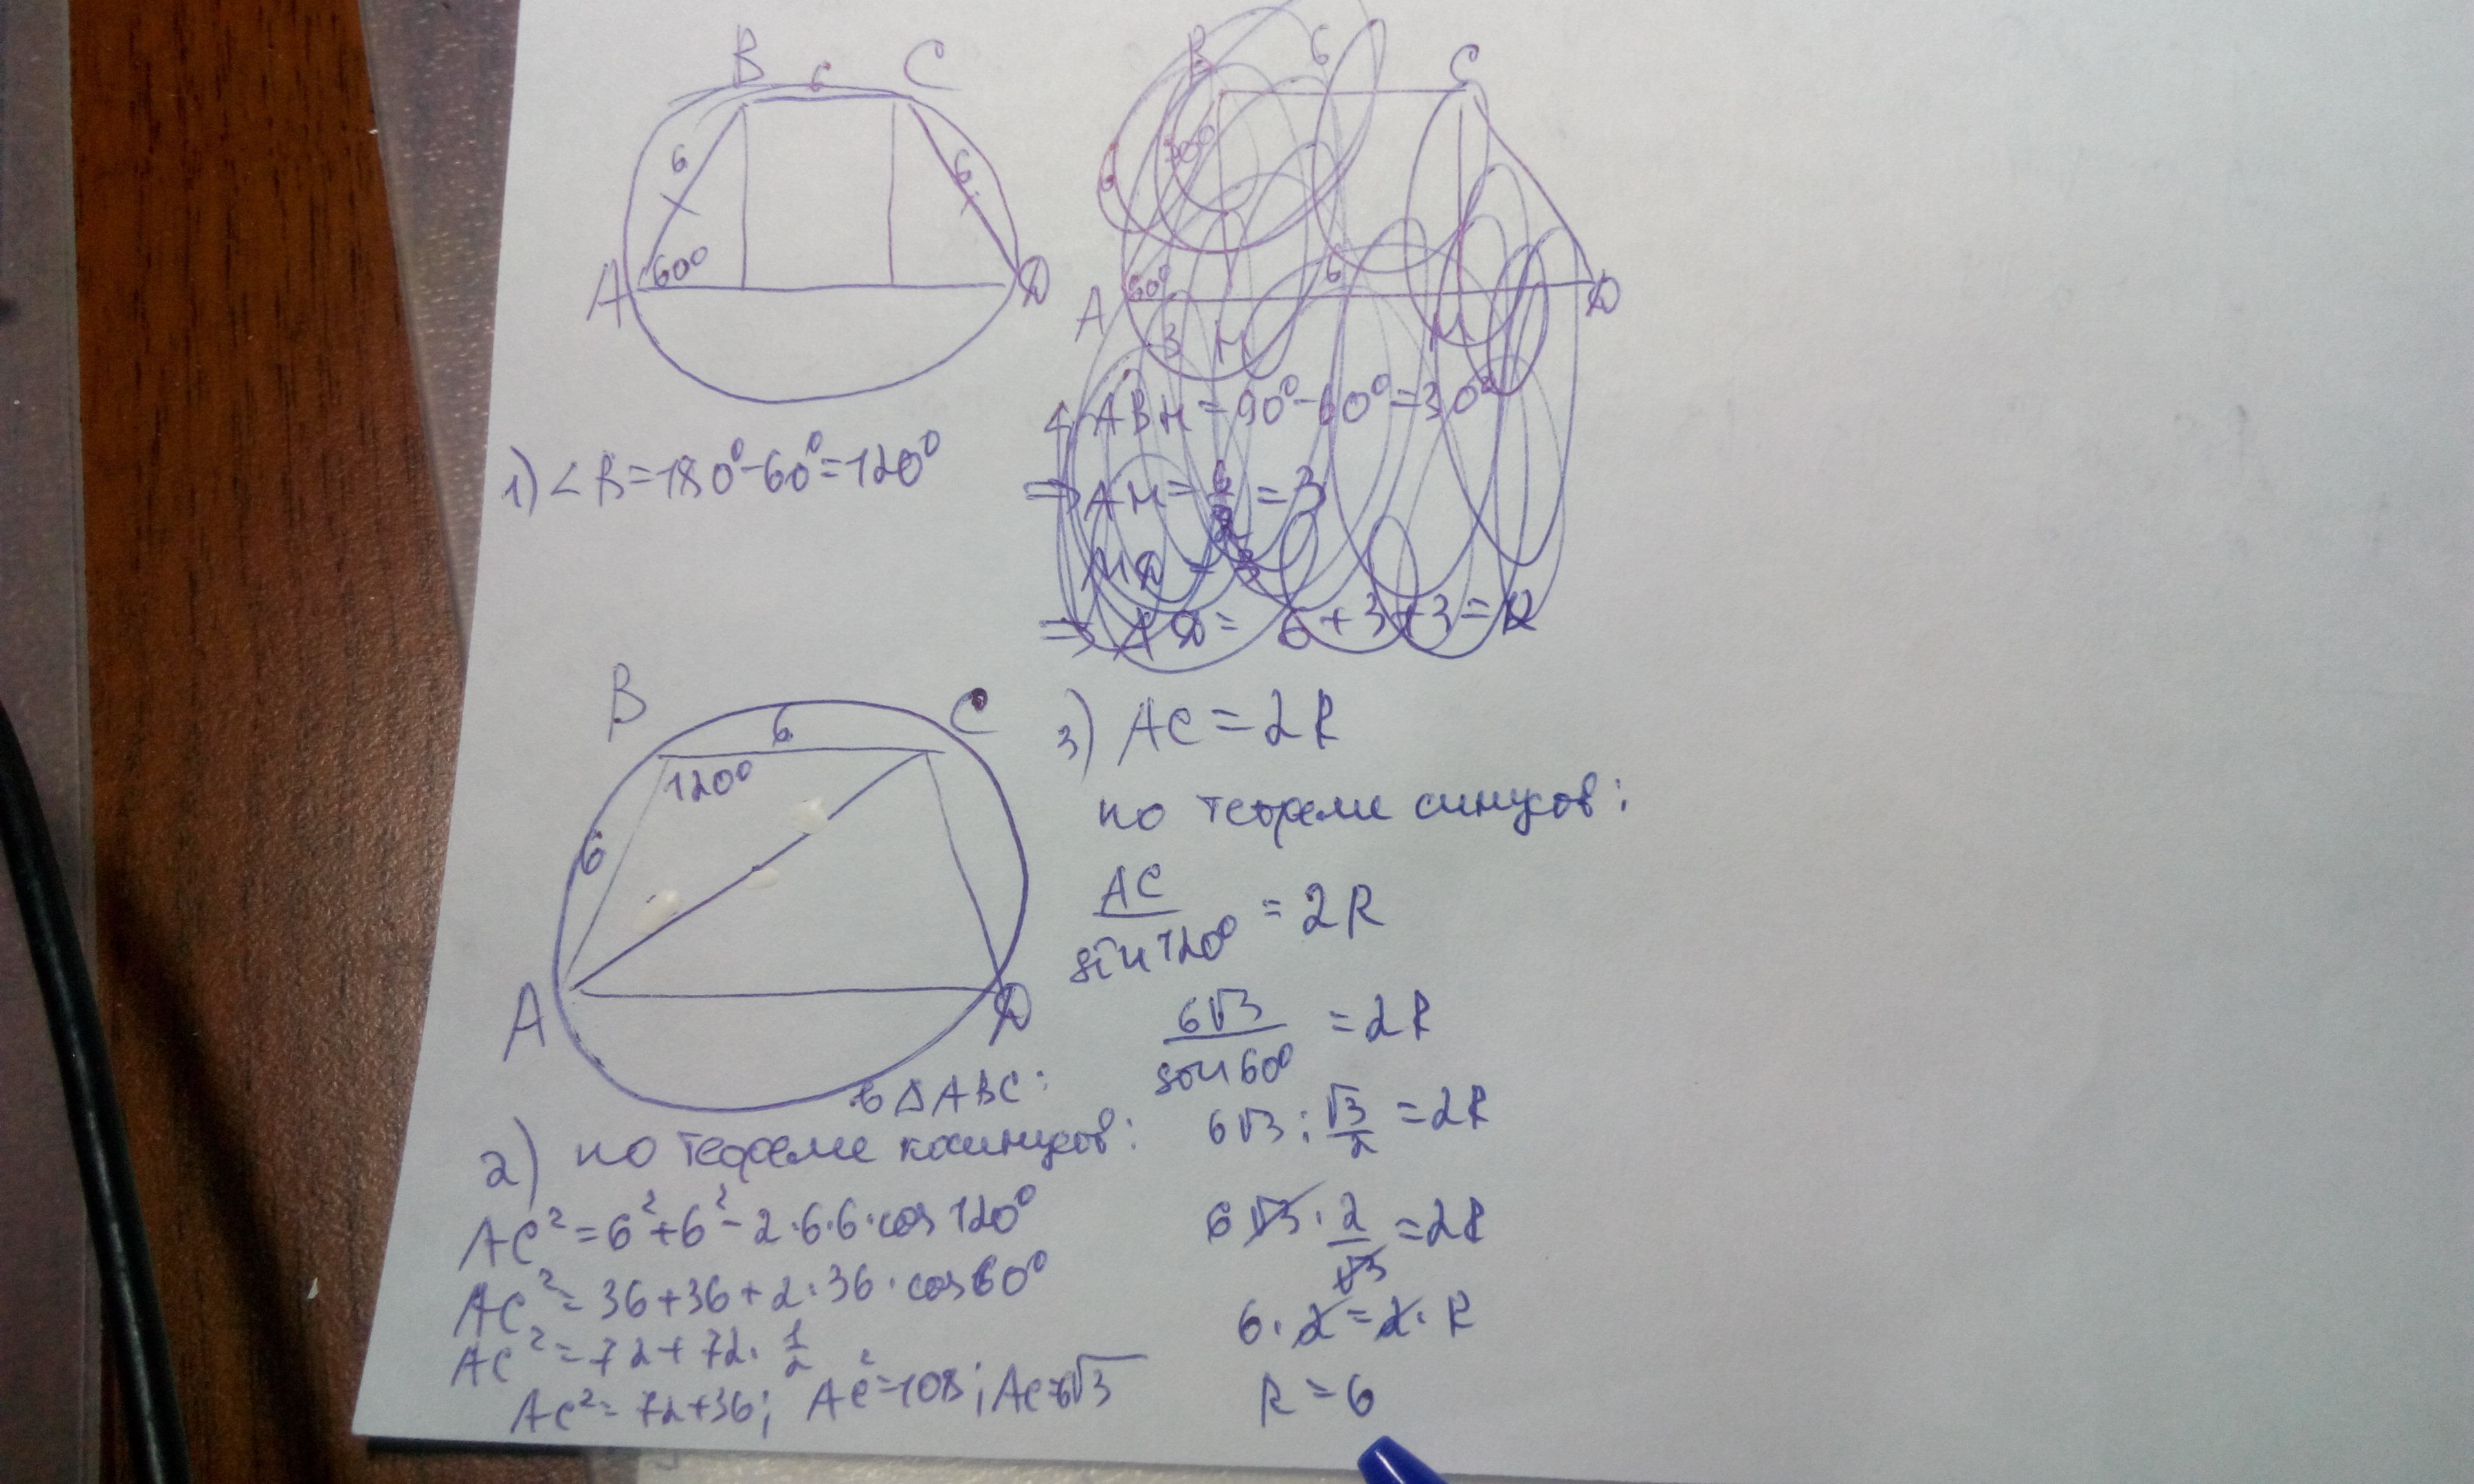 B 6 C
6 6
A 60° D
B 6 C
30°
6
A 60° 6 D
3 H M
1) ∠B=180°-60°=120°
∠ABH=90°-60°=30°
⇒AH=6/2=3
MD=3
⇒AD=6+3+3=12
B 6 C
120°
6
A D
в ΔABC:
2) по теореме косинусов:
AC²=6²+6²-2·6·6·cos120°
AC²=36+36+2·36·cos60°
AC²=72+72·1/2
AC²=72+36; AC²=108; AC=6√3
3) AC=2R
по теореме синусов:
AC/sin120°=2R
6√3/sin60°=2R
6√3:√3/2=2R
6√3·2/√3=2R
6·2=2·R
R=6